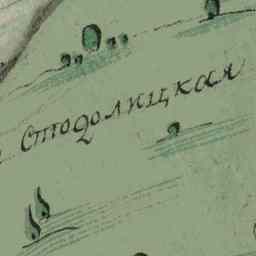 Стодолицкая